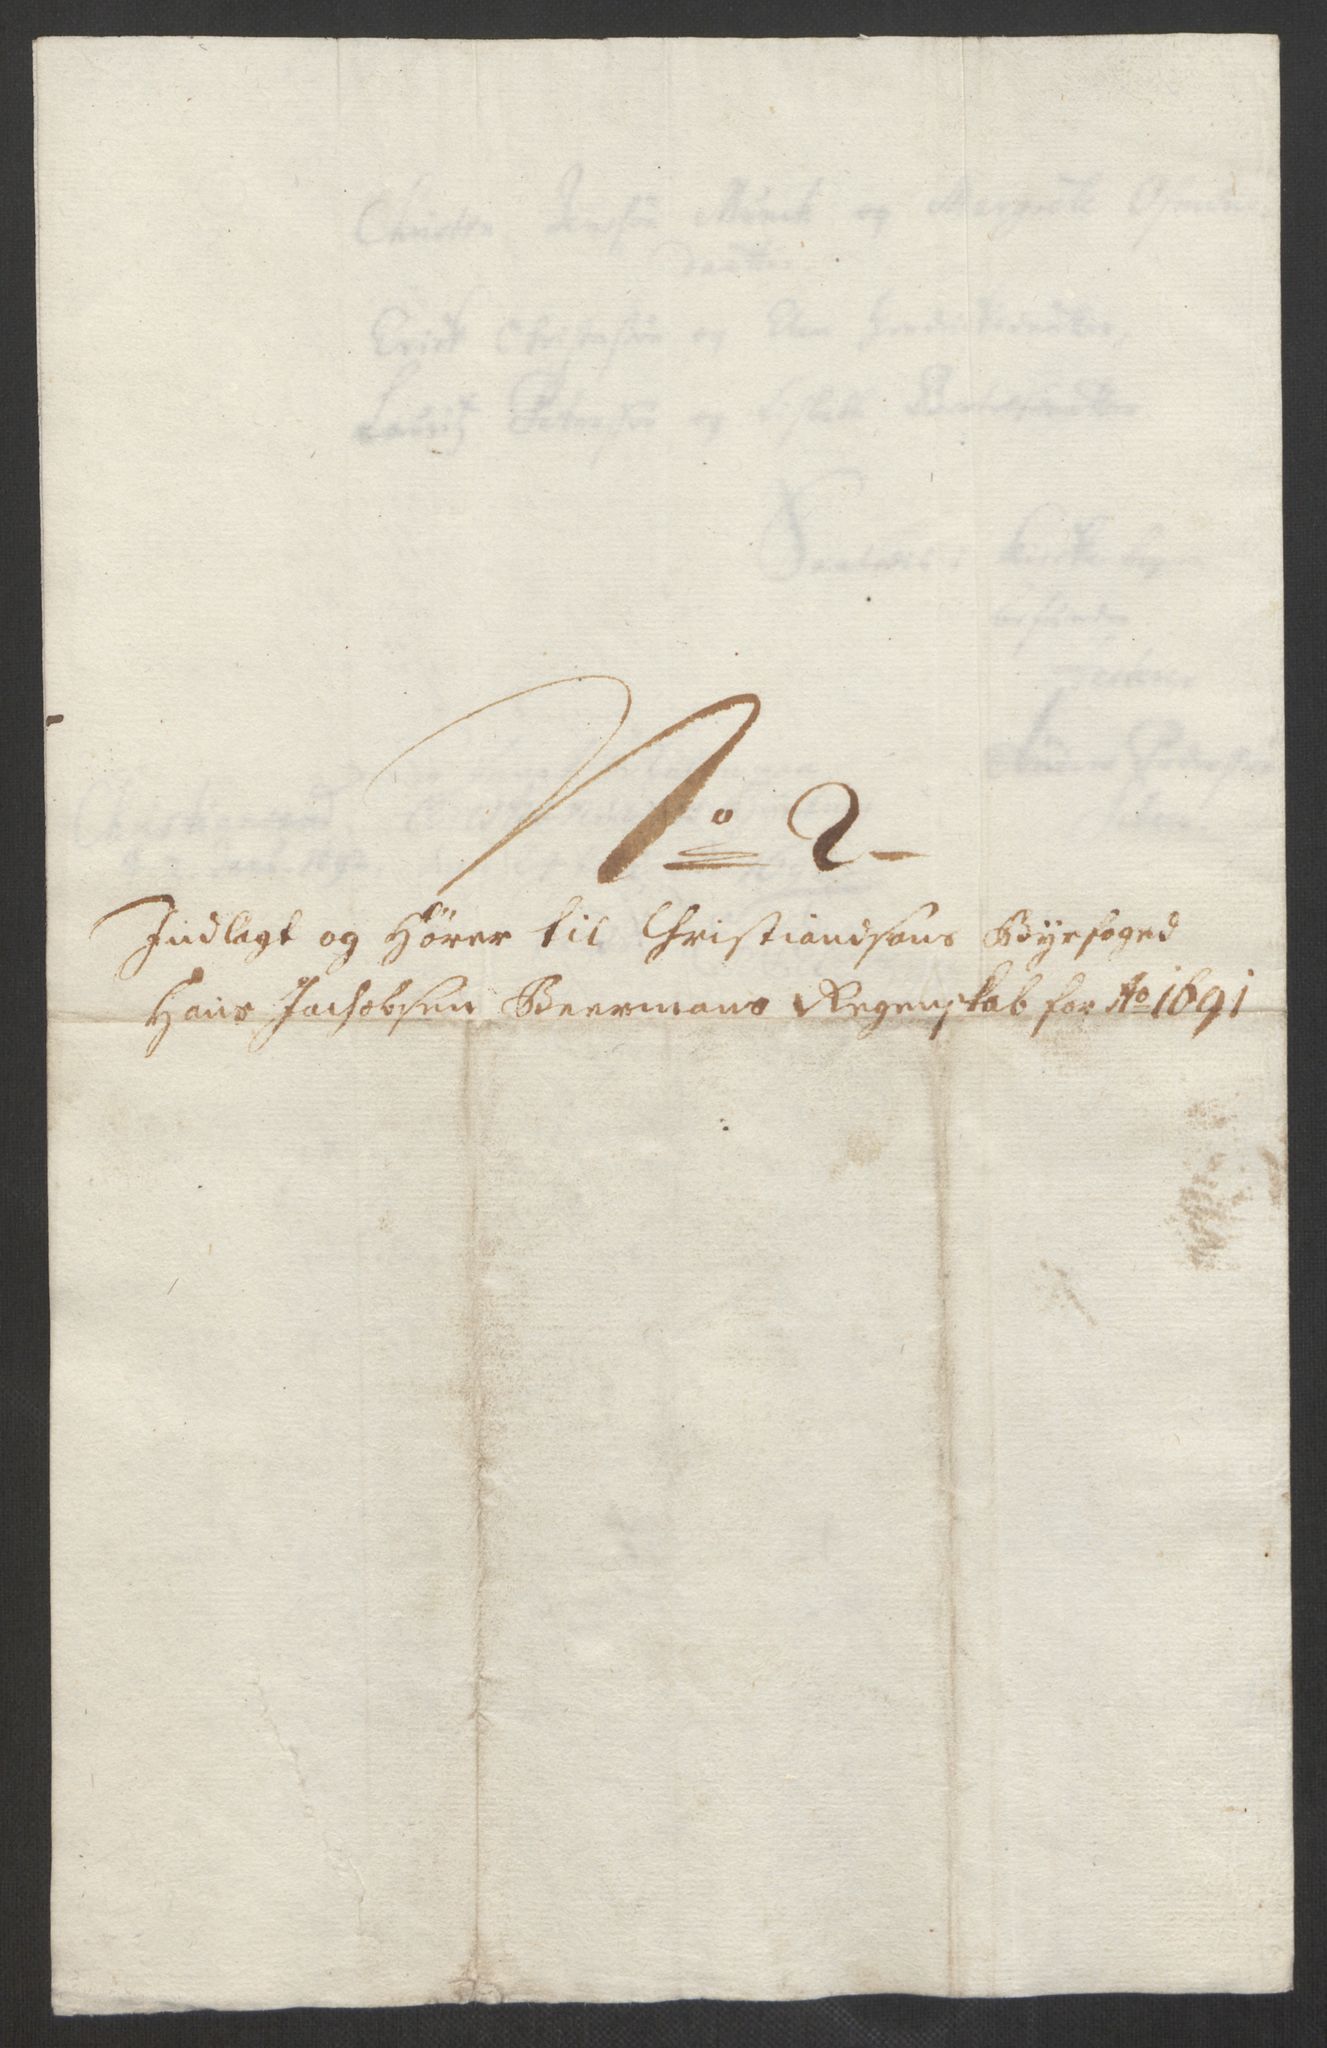 No 2
Indlagt og Hører til Christiandsans Býefoged
Hans Jachobsen Beermans Regenskab for Ao 1691